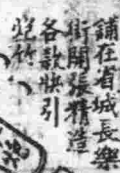 舖在省城長樂
街開張精造
各款快引
炮竹